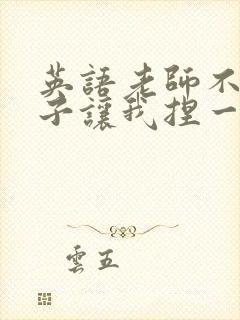 英語老師不
子讓我捏一
雲五